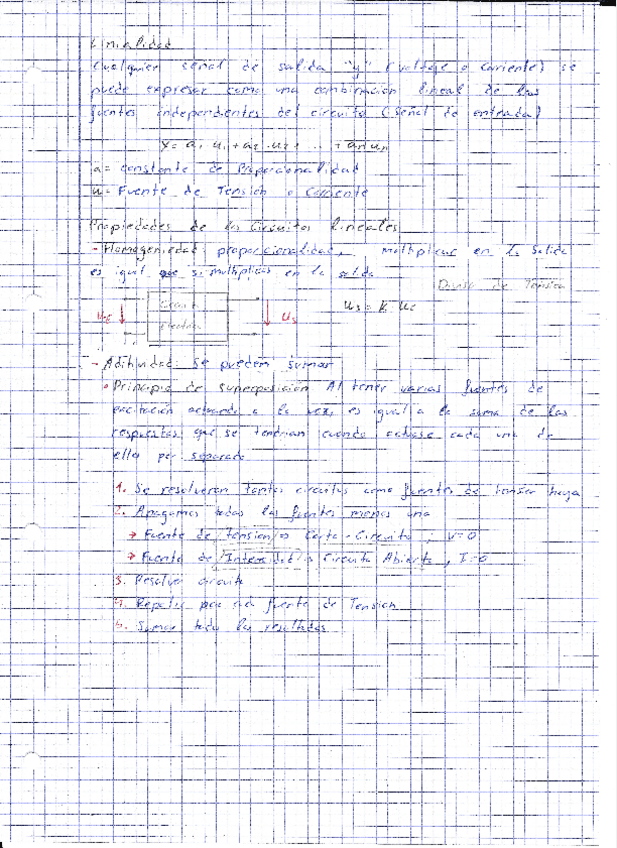 Linialidad
Cualquier señal de salida "y" (voltaje o corriente) se
puede expresar como una combinación lineal de las
fuentes independientes del circuito (señal de entrada)
y = a1 u1 + a2 · u2 + ... + an un
a = constante de Proporcionalidad
u = Fuente de Tension o Corriente
Propiedades de los Circuitos lineales
- Homogeniedad: proporcionalidad, multiplicar en la salida
es igual que si multiplicas en la salida
Divisor de Tension
uE
Circuito
electrico
us
us = K · ue
- Aditividad: se pueden sumar
• Principio de superposición Al tener varias fuentes de
excitación actuando a la vez, es igual a la suma de las
respuestas que se tendrian cuando actuase cada una de
ellas por separado
1. Se resolveran tantos circuitos como fuentes de tension haya
2. Apagamos todas las fuentes menos una
→ Fuente de Tension → Corto-Circuito, V=0
→ Fuente de Intensidad → Circuito Abierto, I=0
3. Resolver circuito
4. Repetir para cada fuente de Tension
5. Sumar todos los resultados